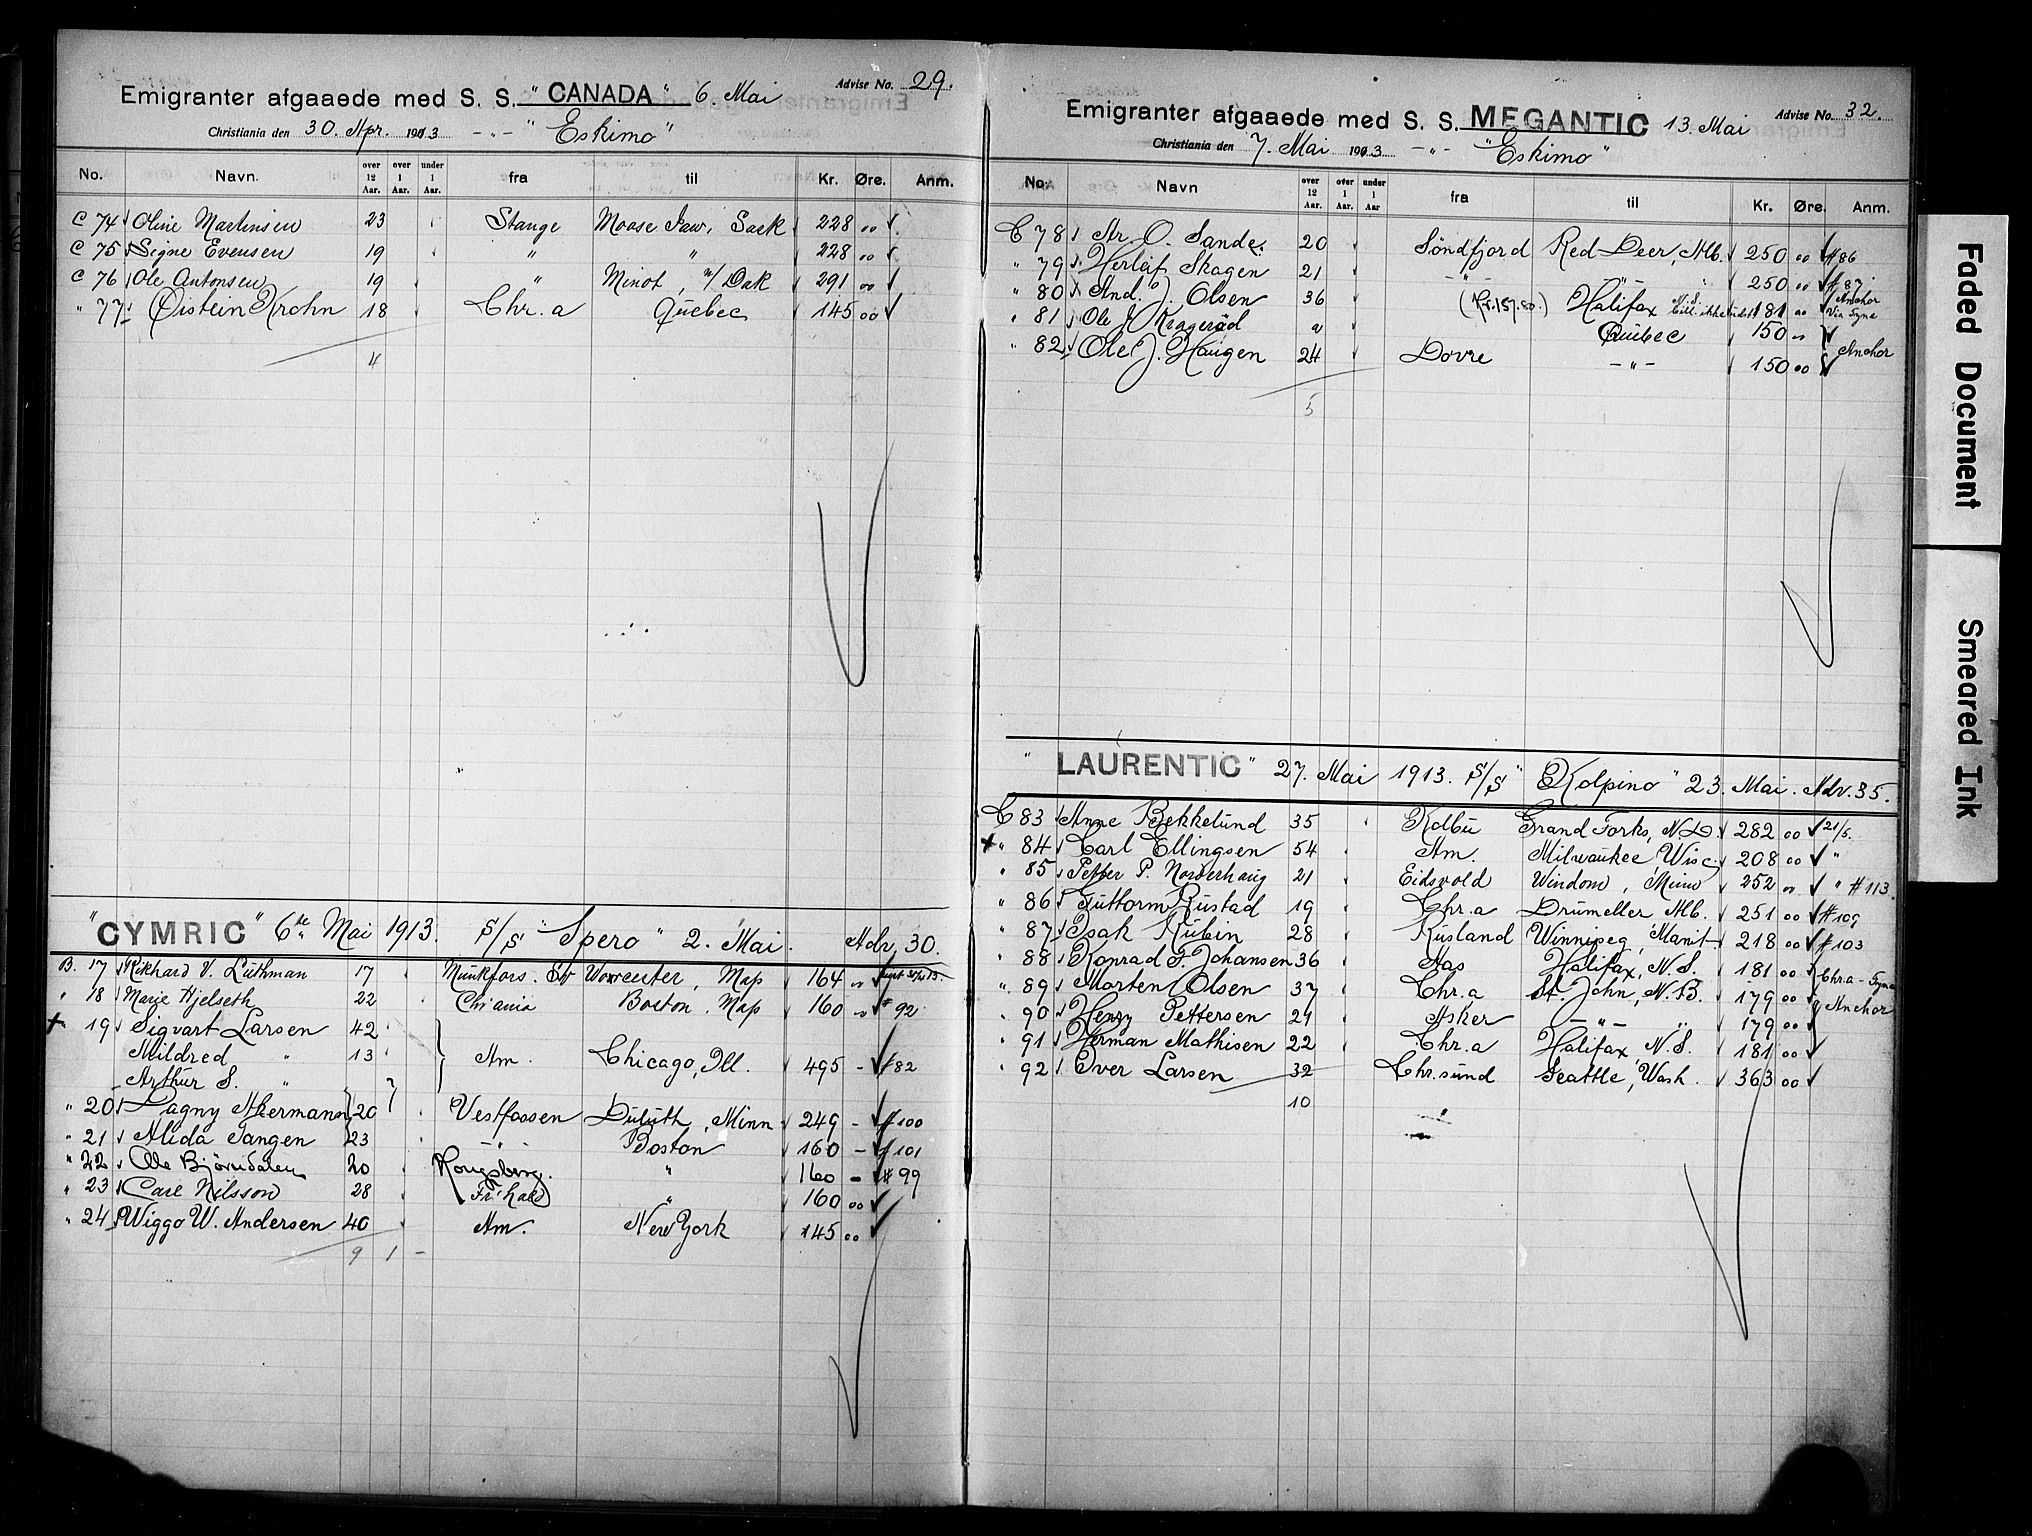 Advise No. 29.
Emigranter afgaaede med S. S. "CANADA" 6. Mai
Christiania den 30. Apr. 1913 -"- "Eskimo"
No. Navn. over 12 Aar. over 1 Aar. under 1 Aar. fra til Kr. Øre. Anm.
C 74 Oline Martinsen 23 Stange Moose Jaw, Sask 228 00
C 75 Signe Evensen 19 " " 228 00
C 76 Ole Antonsen 19 " Minot, N/Dak 291 00
" 77 Øistein Krohn 18 Chr.a Quebec 145 00
4
"CYMRIC" 6te Mai 1913. S/S "Spero" 2. Mai. Adv. 30.
B. 17 Rikhard V. Luthman 17 Munkfors. Sv Worcester, Mass 164 "
" 18 Marie Hjelseth 22 Chr'ania Boston, Mass 160 " # 92
+ " 19 Sigvart Larsen 42
Mildred " 13 Am. Chicago, Ill. 495 - # 82
Arthur S. " 7
" 20 Dagny Akermann 20 Vestfossen Duluth, Minn 249 - # 100
" 21 Alida Tangen 23 -"- Boston 160 - # 101
" 22 Ole Bjørndalen 20 Kongsberg. " 160 - # 99
" 23 Carl Nilsson 28 Fr.hald " 160 00
" 24 Wiggo W. Andersen 40 Am. New York 145 00
9 1 -
Advise No. 32.
Emigranter afgaaede med S. S. MEGANTIC 13. Mai
Christiania den 7. Mai 1913 -"- "Eskimo"
No. Navn over 12 Aar. over 1 Aar. under 1 Aar fra til Kr. Øre. Anm.
C 78 Ar. O. Sande. 20 Søndfjord Red Deer, Alb. 250 00 # 86
" 79 Herlaf Skagen 21 -"- " " 250 00 # 87
" 80 And. J. Olsen 36 (Kr. 157.80.) Halifax N.S. 181 00 Anchor Via Tyne
" 81 Ole J. Kragerød " Quebec 150 "
" 82 Ole J. Haugen 24 Dovre -"- 150 00 Anchor
5
"LAURENTIC" 27. Mai 1913. S/S "Kolpino" 23. Mai. Adv. 35.
C 83 Anne Bekkelund 35 Kolbu Grand Forks, N.D. 282 00 21/5.
+ " 84 Carl Ellingsen 54 Am. Milwaukee Wisc. 208 00 "
" 85 Petter P. Norderhaug 21 Eidsvold Windom, Minn 252 " " # 113.
" 86 Guttorm Rustad 19 Chr.a Drumeller Alb. 251 00 # 109
" 87 Isak Rubin 28 Rusland Winnipeg, Manit 218 00 # 103
" 88 Konrad F. Johansen 36 Aas Halifax, N.S. 181 00 Chr.a - Tyne
" 89 Morten Olsen 37 Chr.a St. John, N.B. 179 00 Anchor
" 90 Henry Pettersen 21 Asker -"- " 179 00
" 91 Herman Mathisen 22 Chr.a Halifax N.S. 181 00
" 92 Over Larsen 32 Chr.sund Seattle, Wash. 363 00
10
Faded Document
Smeared Ink